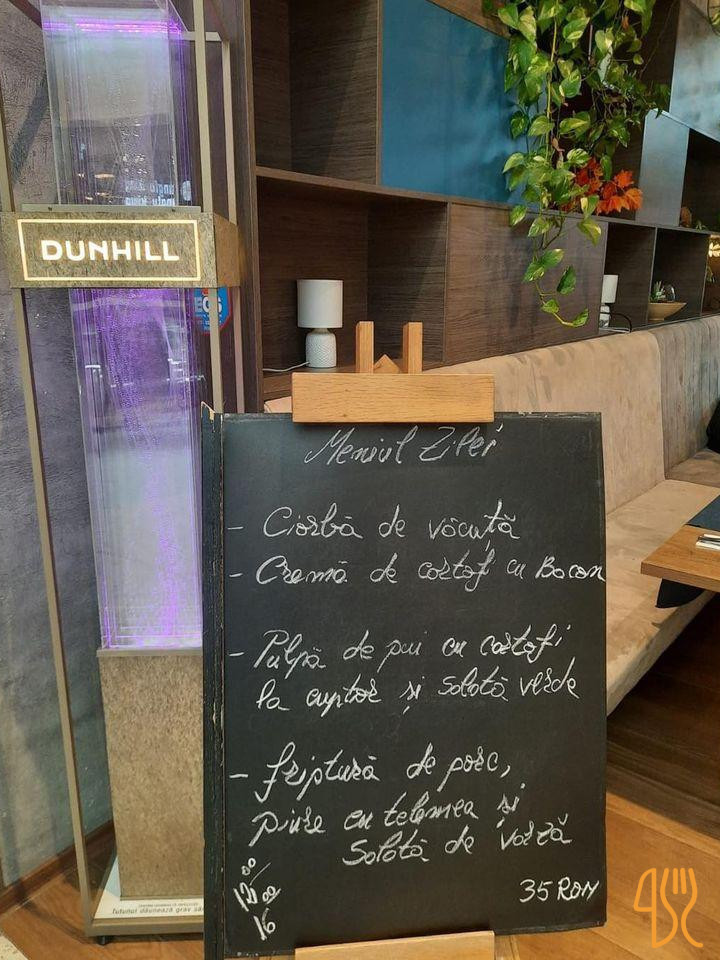 DUNHILL
Meniul Zilei
- Ciorbă de văcuță
- Cremă de cartofi cu Bacon
- Pulpă de pui cu cartofi
la cuptor și salată verde
- friptură de porc,
piure cu telemea și
salată de varză
12⁰⁰
16⁰⁰
35 RON